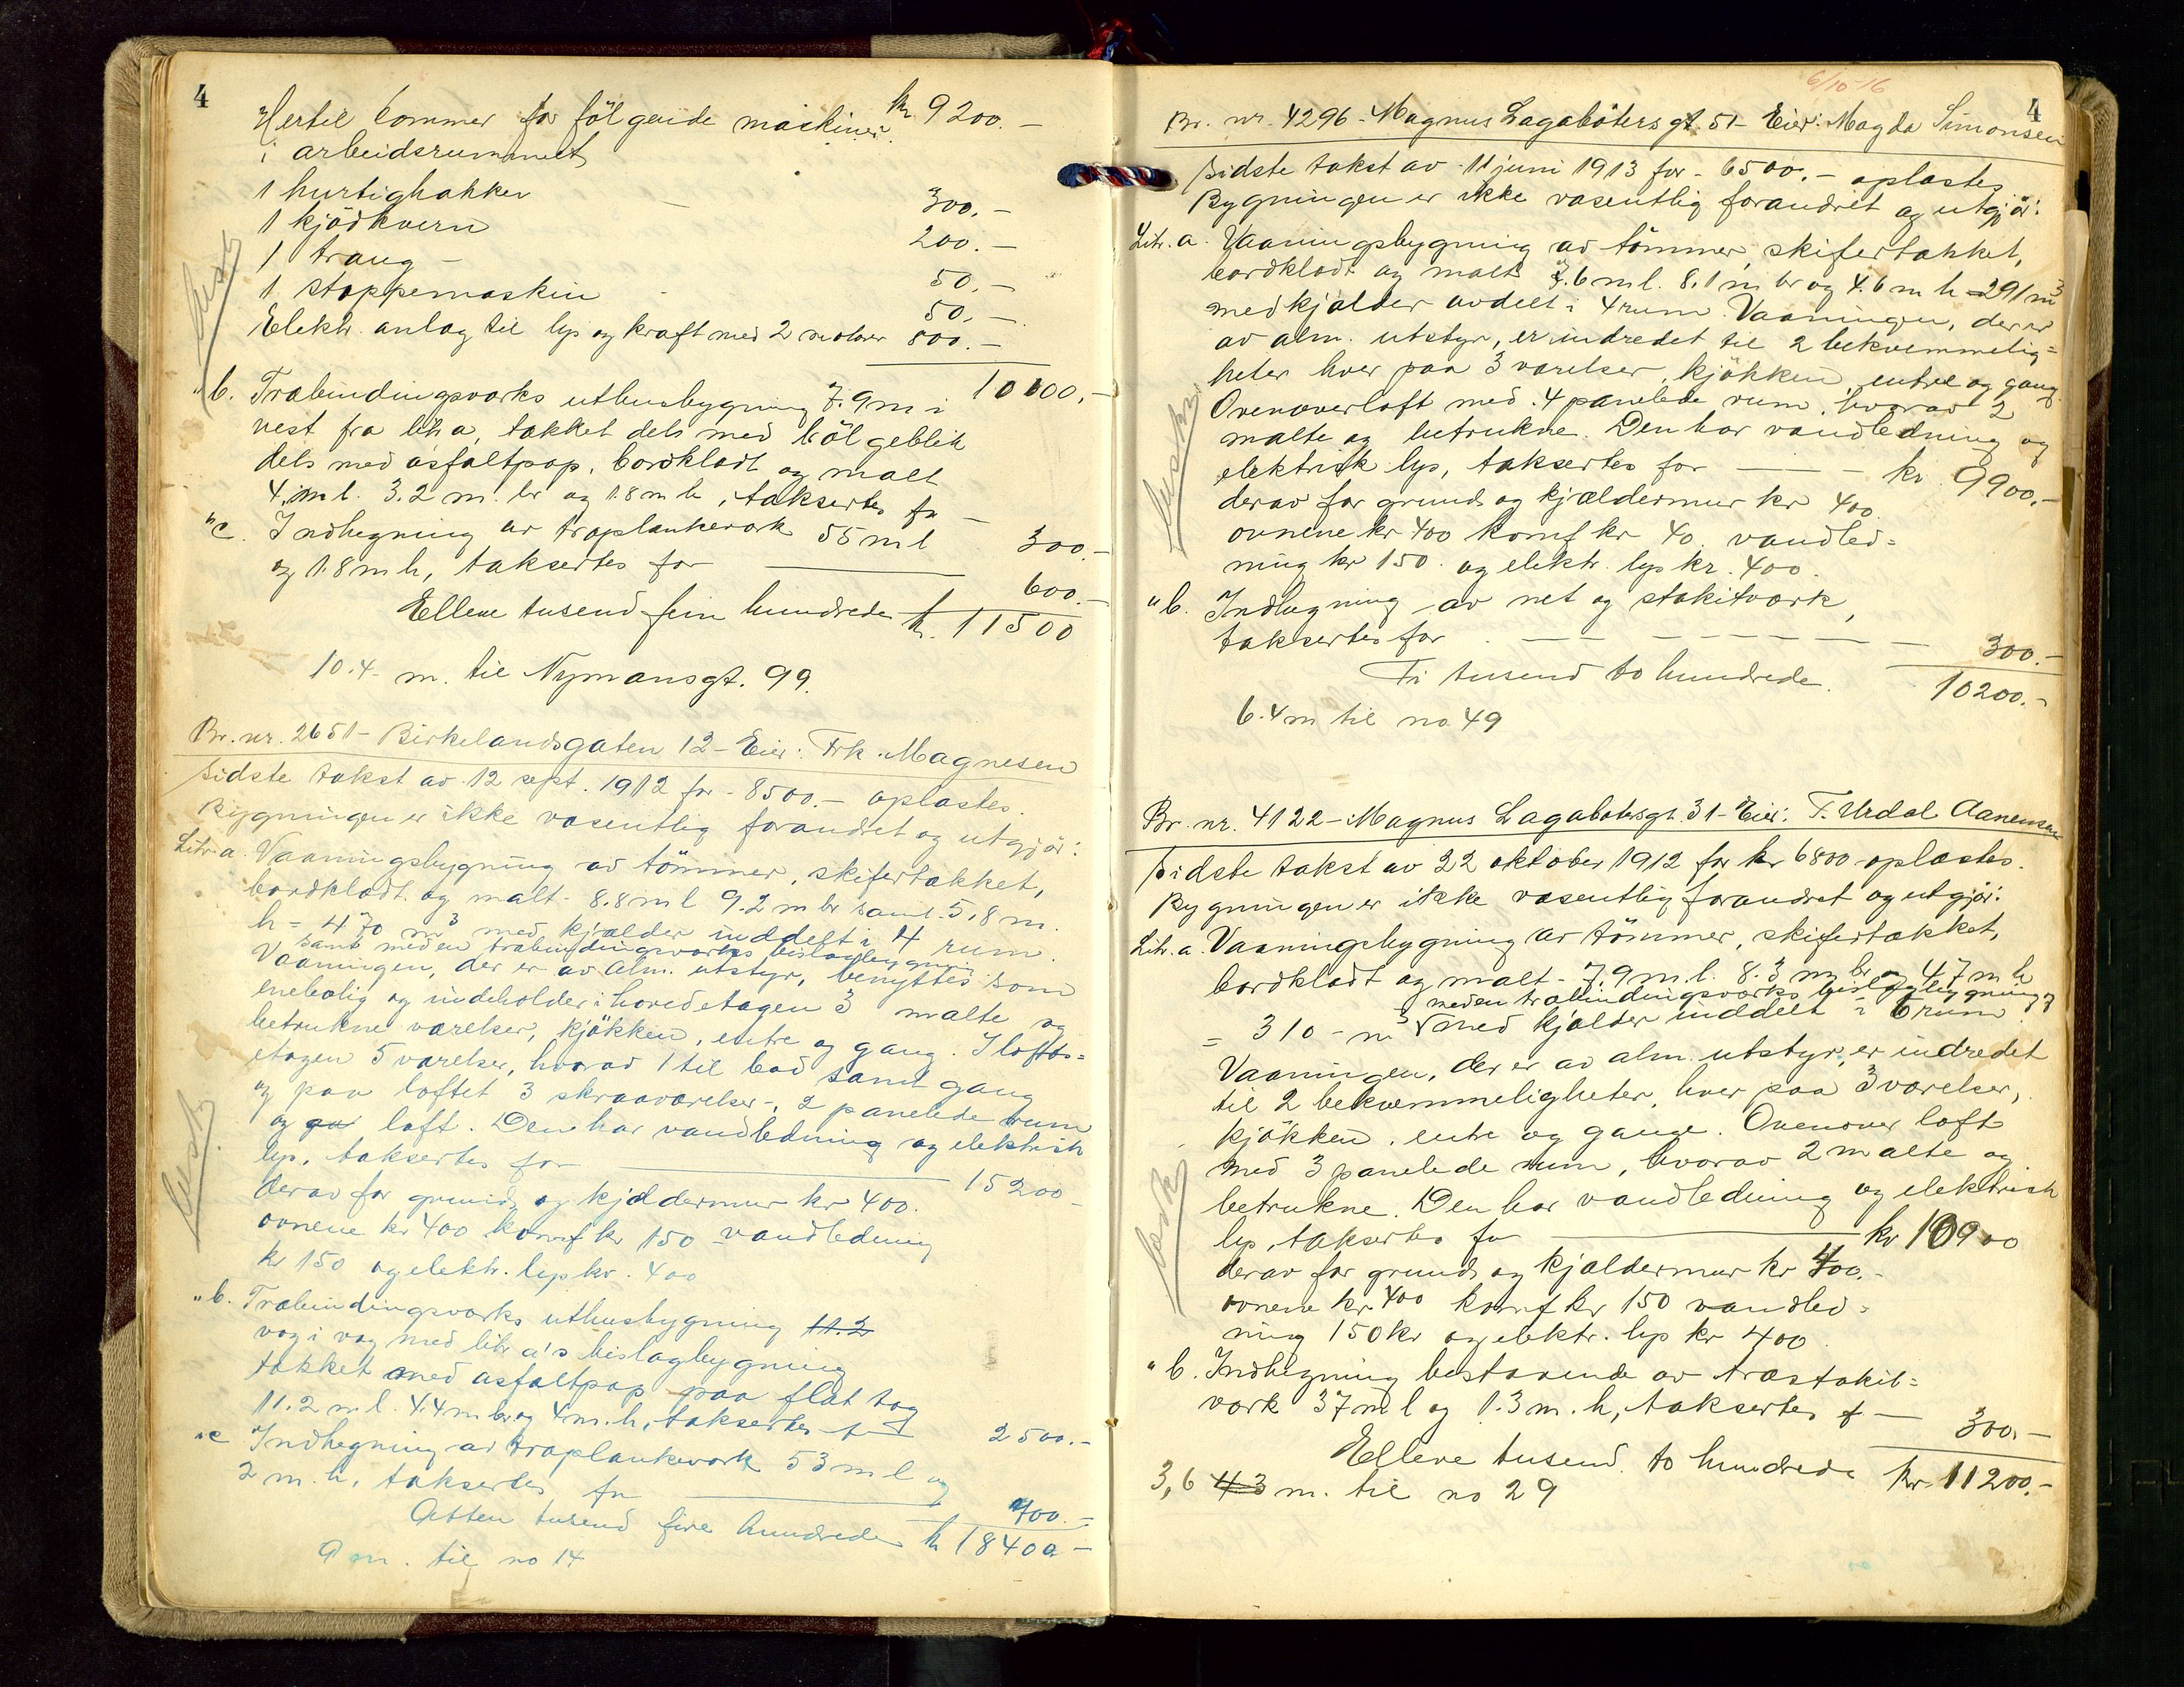 4
kr 9200.-
Hertil kommer for følgende maskiner
i arbeidsrummet
1 hurtighakker 300.-
1 kjødkvern 200.-
1 traug - 50.-
1 stoppemaskin 50.-
Elektr. anlæg til lys og kraft med 2 motorer 800.-
10600.-
"b. Træbindingsværks uthusbygning 7.9 m i
vest fra litr a, tækket dels med bølgeblik
dels med asfaltpap, bordklædt og malt
4. m l. 3.2 m. br og 1.8 m h, takseres for - 300.-
"c. Indhegning av træplankeverk 55 m l
og 1.8 m h, taksertes for 600.-
Elleve tusend fem hundrede kr. 11500
10.4 - m. til Nymansgt. 99.
Br. nr. 2651 - Birkelandsgaten 12 - Eier: Frk. Magnesen
Sidste takst av 12 sept. 1912 for - 8500.- oplæstes.
Bygningen er ikke væsentlig forandret og utgjør:
Litr. a. Vaaningsbygning av tømmer, skifertækket,
bordklædt og malt - 8.8 m l 9.2 m br samt 5,8 m.
h = 470 m³ med kjælder inddelt i 4 rum.
samt med en træbindingsværks bislagbygning
Vaaningen, der er av alm. utstyr, benyttes som
enebolig og indeholder i hovedetagen 3 malte og
betrukne værelser, kjøkken, entre og gang. I lofts=
etagen 5 værelser, hvorav 1 til bad samt gang
og paa loftet 3 skraaværelser -, 2 panelede rum
og loft. Den har vandledning og elektrisk
lys, taksertes for 15200 -
derav for grund og kjældermur kr 400.
ovnene kr 400 komf kr 150 vandledning
kr 150 og elektr. lys kr. 400
"b. Træbindingsværks uthusbygning 11.2
væg i væg med litr a's bislagbygning
tækket med asfaltpap paa flat tag
11.2 m l. 4.4 m br og 4 m. h, taksertes f 2500.-
"c Indhegning av træplankeverk 53 m l og
2 m. h, taksertes for 700.-
Atten tusend fire hundrede kr 18400 -
9 m. til no 14
6/10-16
4
Br. nr. 4296 - Magnus Lagabøters gt. 51 - Eier: Magda Simonsen
Sidste takst av 11 juni 1913 for - 6500.- oplæstes
Bygningen er ikke væsentlig forandret og utgjør:
Litr. a. Vaaningsbygning av tømmer, skifertækket,
bordklædt og malt 7.6 m l. 8.1 m br og 4.6 m h = 291 m³
med kjælder avdelt i 4 rum. Vaaningen, der er
av alm. utstyr, er indredet til 2 bekvemmelig=
heter hver paa 3 værelser, kjøkken, entre og gang
Ovenover loft med 4 panelede rum, hvorav 2
malte og betrukne. Den har vandledning og
elektrisk lys, taksertes for - kr. 9900.-
derav for grund og kjældermur kr 400.
ovnene kr 400 komf kr 40. vandled=
ning kr 150. og elektr. lys kr. 400.
"b. Indhegning av net og stakitværk,
taksertes for 300.-
Ti tusend to hundrede. 10200.-
6.4 m til no 49
Br. nr. 4122 - Magnus Lagabøtersgt. 31 - Eier: T. Urdal Aanensen
Sidste takst av 22 oktober 1912 for kr 6800 oplæstes.
Bygningen er ikke væsentlig forandret og utgjør:
Litr. a. Vaaningsbygning av tømmer, skifertækket,
bordklædt og malt - 7.9 m. l. 8.3 m br og 4.7 m h
med en træbindingsværks bislagbygning og
= 310 - m³ med kjælder inddelt i 6 rum
Vaaningen, der er av alm. utstyr, er indredet
til 2 bekvæmmeligheter, hver paa 3 værelser,
kjøkken, entre og gange. Ovenover loft
med 3 panelede rum, hvorav 2 malte og
betrukne. Den har vandledning og elektrisk
lys, taksertes for kr 10900
derav for grund og kjældermur kr 400.-
ovnene kr 400 komf kr 150 vandled=
ning 150 kr og elektr. lys kr 400
"b. Indhegning bestaaende av træstakit=
værk 37 m l og 1.3 m. h, taksertes f - 300.-
Elleve tusend to hundrede kr 11200.-
3,6 4.3 m. til no 29